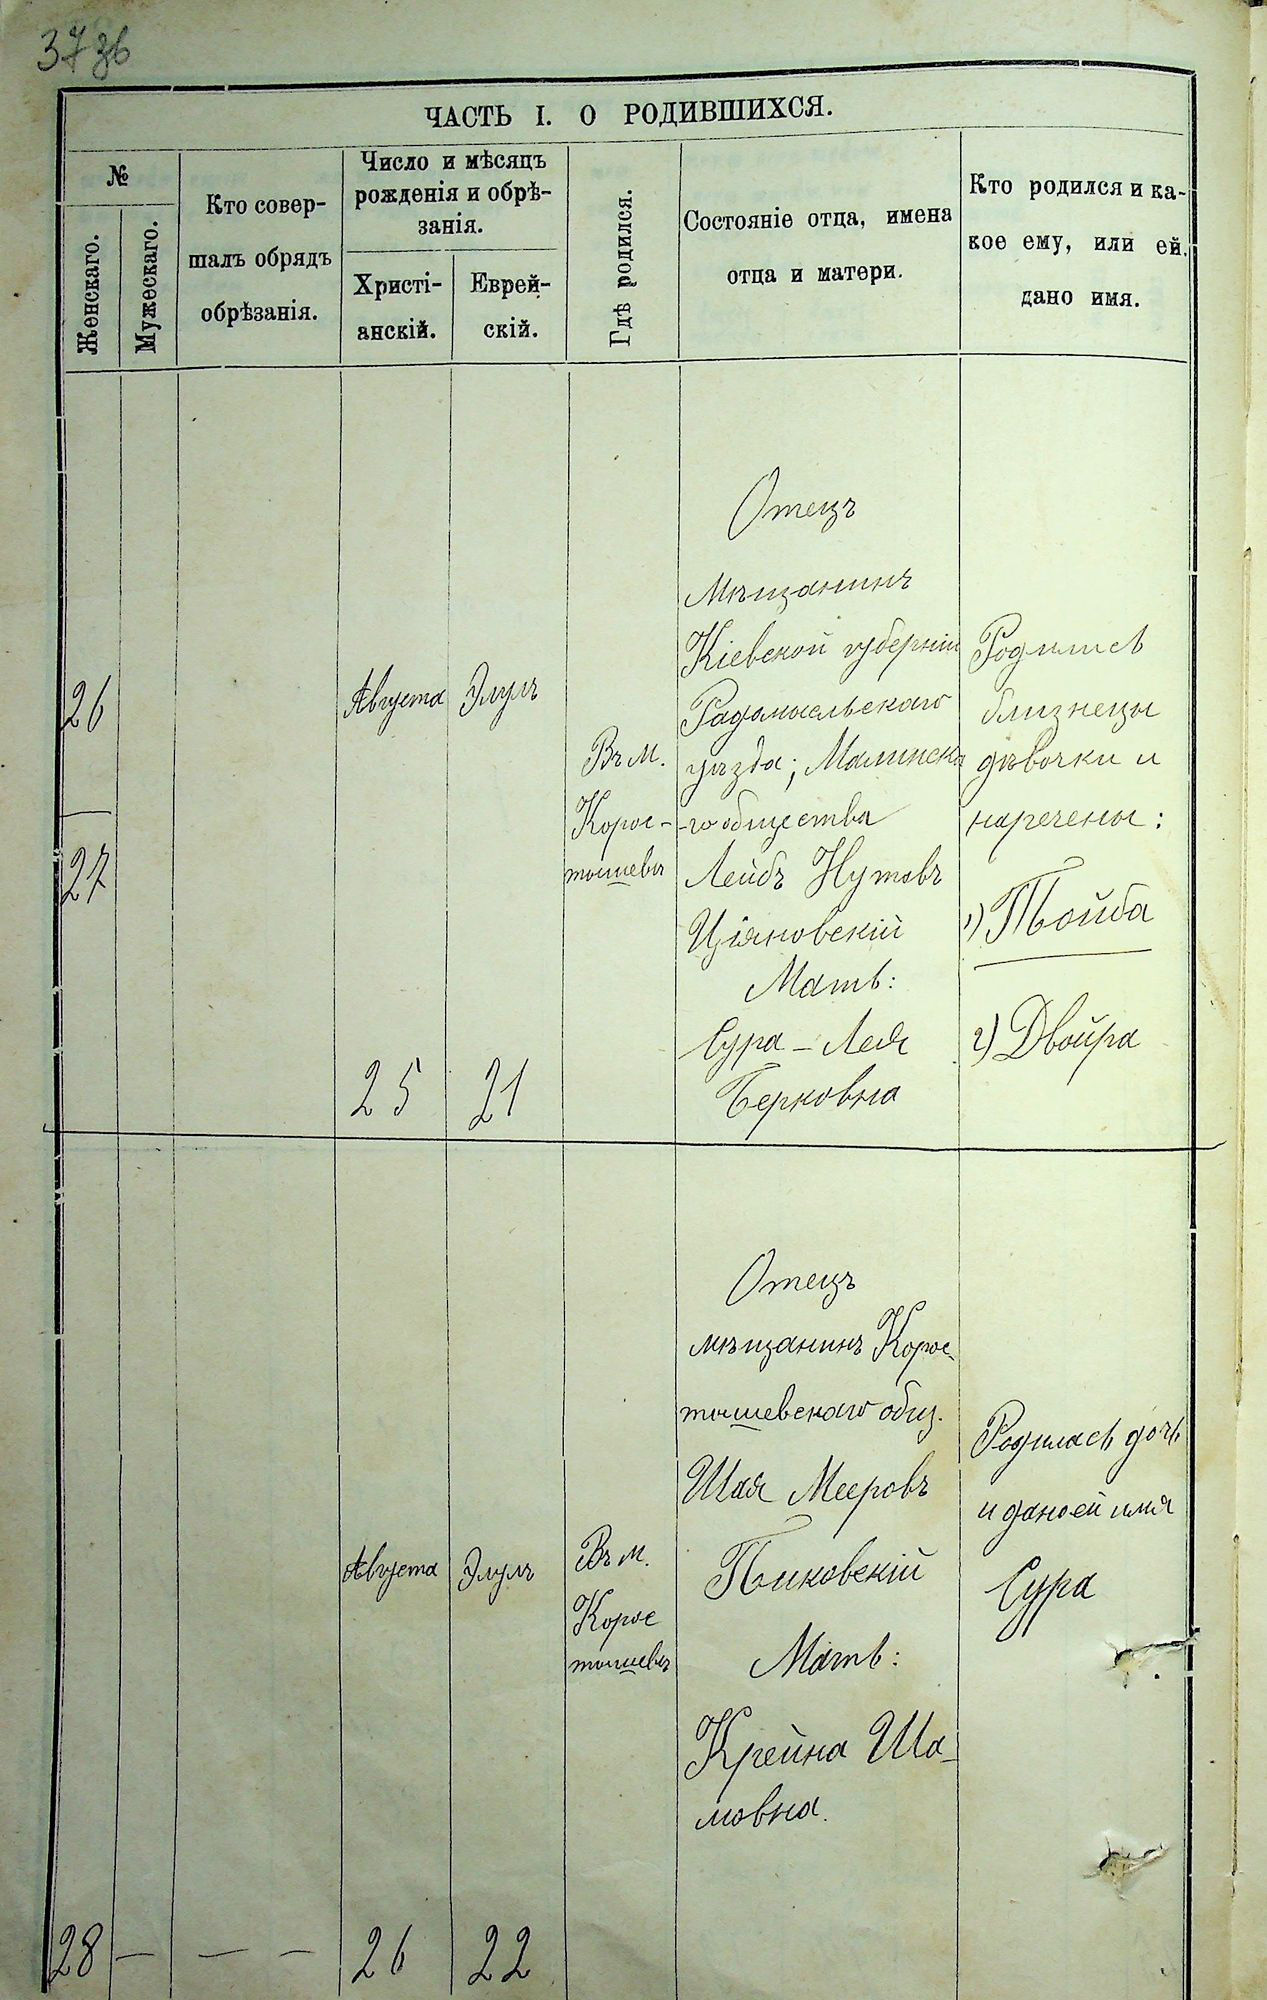 37зв
ЧАСТЬ I. О РОДИВШИХСЯ.
№
Женскаго.
Мужескаго.
Кто совер-
шалъ обрядъ
обрѣзанія.
Число и мѣсяцъ
рожденія и обрѣ-
занія.
Христі-
анскій.
Еврей-
скій.
Гдѣ родился.
Состояніе отца, имена
отца и матери.
Кто родился и ка-
кое ему, или ей.
дано имя.
26
27
Августа
25
Элулъ
21
Въ м.
Корос-
тышевѣ
Отецъ
Мѣщанинъ
Кіевской губерніи
Радомысльскаго
уѣзда; Малинска
-го общества
Лейбъ Нутовъ
Ціяновскій
Мать:
Сура-Лея
Берковна
Родились
близнецы
дѣвочки и
наречены:
1) Тойба
2) Двойра
28 — — —
Августа
26
Элулъ
22
Въ м.
Корос
тышевѣ
Отецъ
мѣщанинъ Корос-
тышевскаго общ.
Шая Мееровъ
Пиковскій
Мать:
Крейна Ша-
мовна.
Родилась дочь
и дано ей имя
Сура